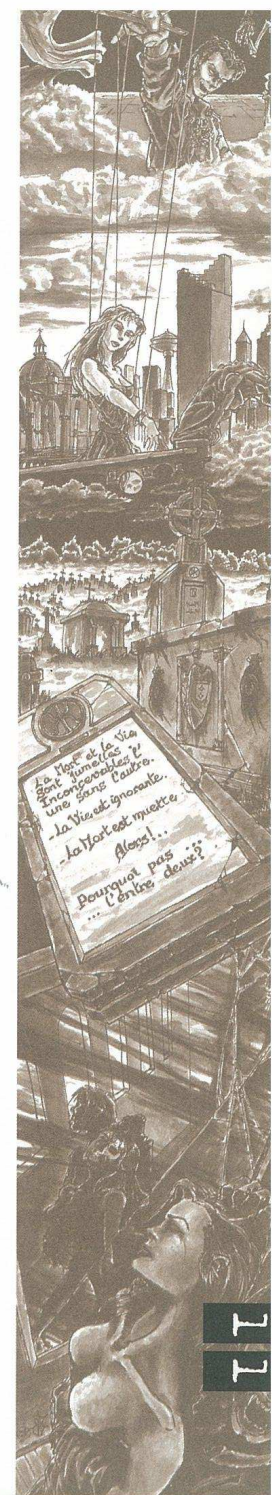 La Mort et la Vie
sont jumelles
Inconcevables l'
une sans l'autre.
-La Vie est ignorante.
-La Mort est muette.
Alors!...
Pourquoi pas ...
... l'entre deux?